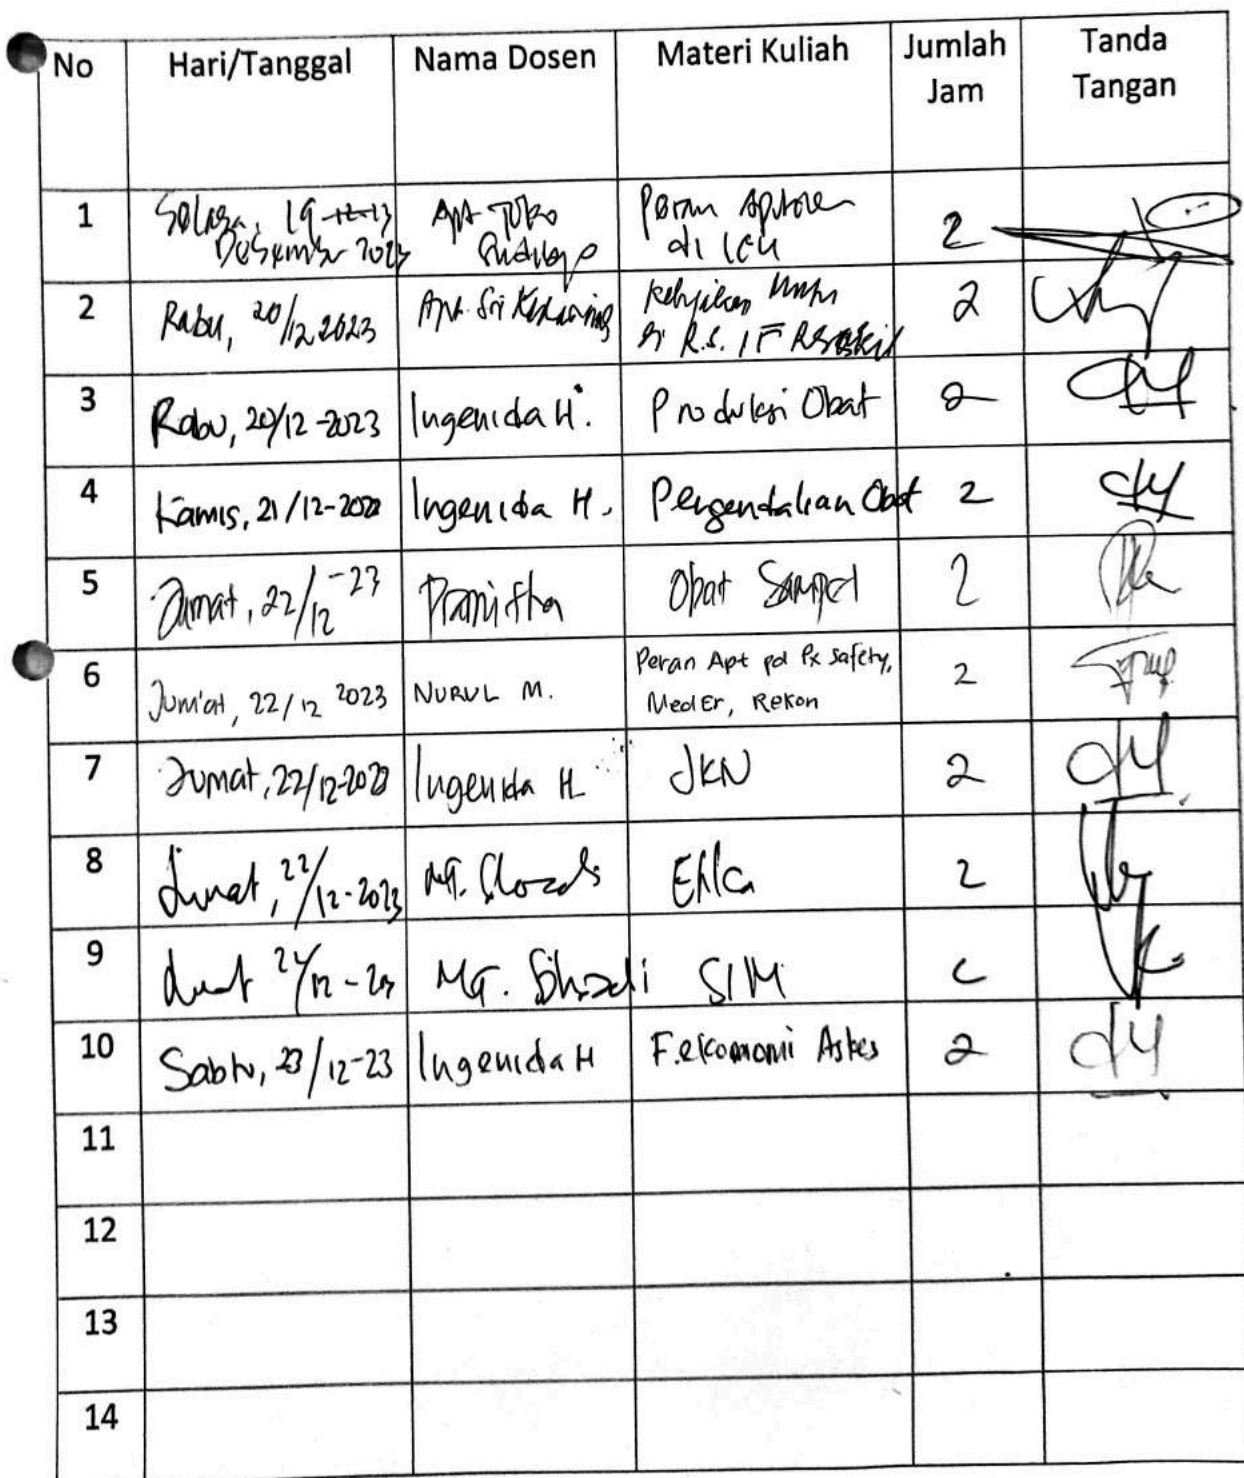 No Hari/Tanggal Nama Dosen Materi Kuliah Jumlah Jam Tanda Tangan
1 19 Desember 2023 Apt Peran di ICU 2
2 Rabu, 20/12 2023 Apt. Sri R.S. 2
3 Rabu, 20/12-2023 Ingenida H. Produksi Obat 2
4 Kamis, 21/12-2023 Ingenida H. Pengendalian Obat 2
5 Jumat, 22/12-23 Pramitha Obat Sampel 2
6 Jum'at, 22/12 2023 NURUL M. Peran Apt pd Px Safety,
Med Er, Rekon 2
7 Jumat, 22/12-2023 Ingenida H JKN 2
8 Jumat, 22/12-2023 2
9 MG. SIM
10 Sabtu, 23/12-23 Ingenida H F.ekonomi Askes 2
11
12
13
14